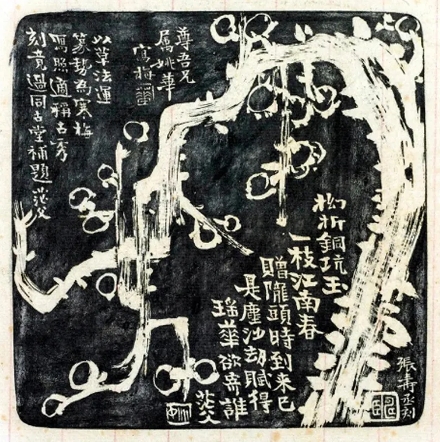 尊吾兄
屬姚華
寫梅
以草法運
篆勢為寒梅
寫照適稱古秀
刻竟過同古堂補題茫父
拗折銅坑玉
一枝江南春
贈隴頭時到来已
是塵沙劫賦得
瑤華欲寄誰
茫父
張壽丞刻